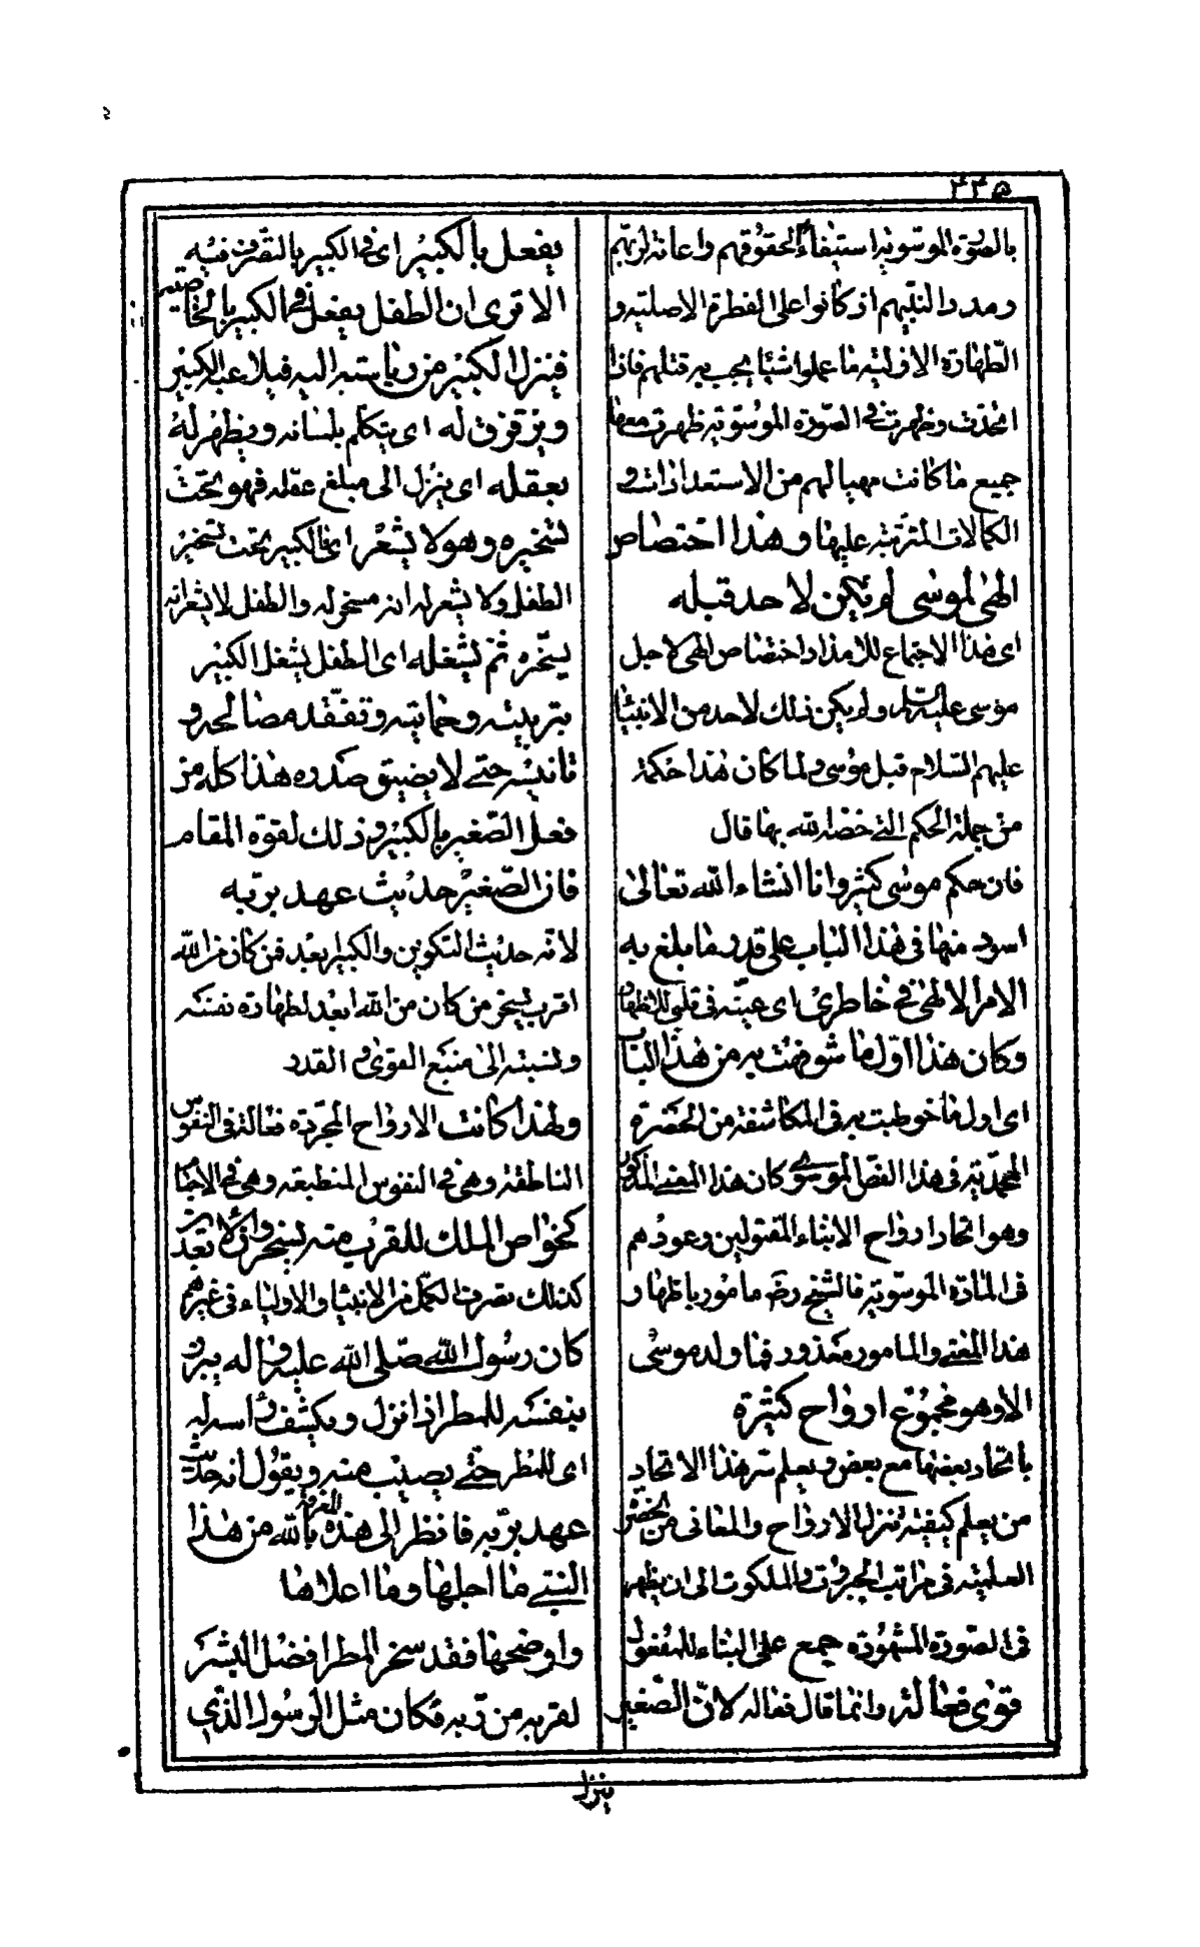 ٤٤٥
بالصورة الموسوية استيفاء لحقوقهم واعانة لربهم
ومددا لنبيهم اذ كانوا على الفطرة الاصلية و
الطهارة الاولية ما عملوا شيئا يجب به قتلهم فاذا
اتحدت وظهرت في الصورة الموسوية ظهرت معها
جميع ما كانت مهيا لهم من الاستعدادات و
الكمالات المترتبة عليها وهذا اختصاص
الهى لموسى لم يكن لاحد قبله
اى هذا الاجتماع للامداد اختصاص الهى لاجل
موسى عليه السلم ولم يكن ذلك لاحد من الانبياء
عليهم السلام قبل موسى ولما كان هذا حكمة
من جملة الحكم التى خصه الله بها قال
فان حكم موسى كثيرة وانا انشاء الله تعالى
اسرد منها فى هذا الباب على قدر ما يلغ به
الامر الالهى فى خاطرى اى عينه فى قلبى للاظهار
وكان هذا اول ما شوفهت به من هذا الباب
اى اول ما خوطبت به فى المكاشفة من الحضرة
المحمدية فى هذا الفص الموسوى كان هذا المعنى المذكور
وهو اتحاد ارواح الابناء المقتولين وعودهم
فى المادة الموسوية فالشيخ رضه مامور باظهار
هذا المعنى والمامور معذور فما ولد موسى
الا وهو مجموع ارواح كثيرة
باتحاد بعضها مع بعض ويعلم سر هذا الاتحاد
من يعلم كيفية تنزل الارواح والمعانى من الحضرة
العلمية فى مراتب الجبروت والملكوت الى ان يظهر
فى الصورة المشهودة جمع على البناء للمفعول
قوى فعالة وانما قال فعاله لان الصغير
يفعل بالكبير اى فى الكبير بالتصرف فيه
الا ترى ان الطفل يفعل فى الكبير بالخاصية
فينزل الكبير من رياسته اليه فيلاعبه الكبير
ويزقزق له اى يتكلم بلسانه ويظهر له
بعقله اى ينزل الى مبلغ عقله فهو تحت
تسخيره وهو لا يشعر اى فالكبير تحت تسخير
الطفل ولا يشعر له انه مسخر له والطفل لا يشعر انه
يسخره ثم يشغله اى الطفل يشغل الكبير
بتربيته وحمايته وتفقد مصالحه و
تانيسه حتى لا يضيق صدره هذا كله من
فعل الصغير بالكبير وذلك لقوة المقام
فان الصغير حديث عهد بربه
لانه حديث التكوين والكبير ابعد فمن كان من الله
اقرب يسخر من كان من الله ابعد لطهارة نفسه
ونسبته الى منبع القوى و القدر
ولهذا كانت الارواح المجردة فعالة فى النفوس
الناطقة وهى فى النفوس المنطبعة وهى فى الاجسام
كخواص الملك للقرب منه يسخرون الابعدين
كذلك تصرف الكمل من الانبيا والاولياء فى غيرهم
كان رسول الله صلى الله عليه واله يبرز
بنفسه للمطر اذا نزل ويكشف راسه له
اى للمطر حتى يصيب منه ويقول انه حديث
عهد بربه فانظر الى هذه المعرفة بالله من هذا
النبى ما اجلها وما اعلاها
واوضحها فقد سخر المطر افضل البشر
لقربه من ربه فكان مثل الرسول الذى
ينزل